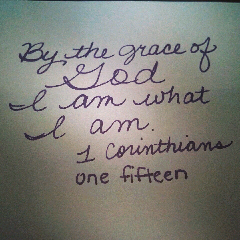 By the grace of
God
I am what
I am.
1 Corinthians
one fifteen